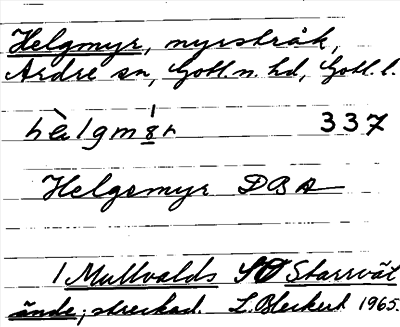 Helgmyr, myrstråk,
Ardre sn, Gotl. n. hd, Gotl. l.
hèlgmýr 337
Helgemyr DBA
1 Mullvalds SO Starrvät
ände; streckad. L. Bleckert 1965.